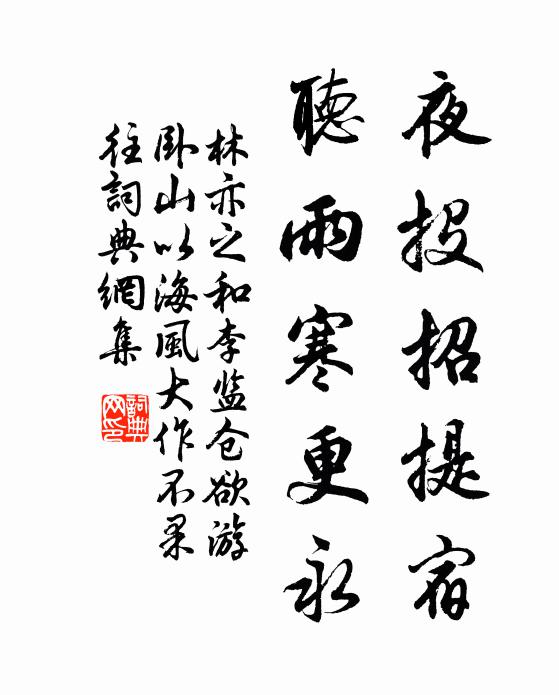 夜投招提宿
聽雨寒更永
林亦之和李监仓欲游
卧山以海風大作不果
往詞典網集
詞典
网印